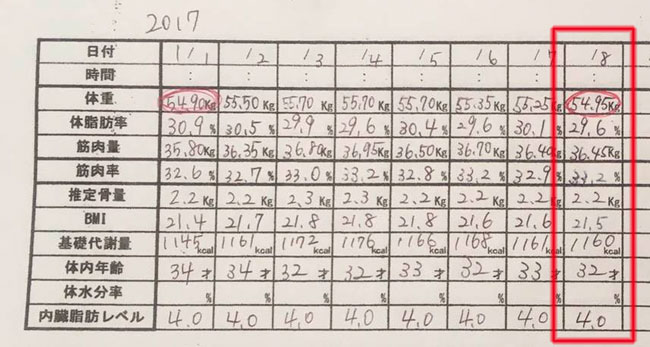 2017
日付 1/1 1/2 1/3 1/4 1/5 1/6 1/7 1/8
時間 : : : : : : : :
体重 54.90Kg 55.50Kg 55.70Kg 55.70Kg 55.70Kg 55.35Kg 55.25Kg 54.95Kg
体脂肪率 30.9% 30.5% 29.9% 29.6% 30.4% 29.6% 30.1% 29.6%
筋肉量 35.80Kg 36.35Kg 36.80Kg 36.95Kg 36.50Kg 36.70Kg 36.40Kg 36.45Kg
筋肉率 32.6% 32.7% 33.0% 33.2% 32.8% 33.2% 32.9% 33.2%
推定骨量 2.2Kg 2.2Kg 2.3Kg 2.3Kg 2.2Kg 2.2Kg 2.2Kg 2.2Kg
BMI 21.4 21.7 21.8 21.8 21.8 21.6 21.6 21.5
基礎代謝量 1145kcal 1161kcal 1172kcal 1176kcal 1166kcal 1168kcal 1161kcal 1160kcal
体内年齢 34才 34才 32才 32才 33才 32才 33才 32才
体水分率 % % % % % % % %
内臓脂肪レベル 4.0 4.0 4.0 4.0 4.0 4.0 4.0 4.0